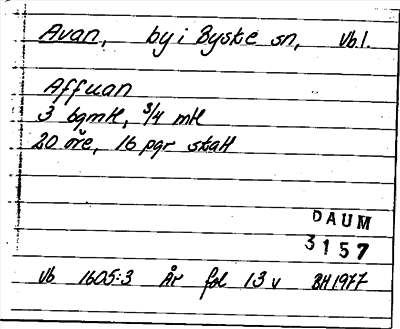 Avan, by i Byske sn, Vb l.
Affuan
3 bgmH, 3/4 mH
20 öre, 16 pgr skaH
DAUM
3157
Vb 1605:3 År fol 13 v BH1977